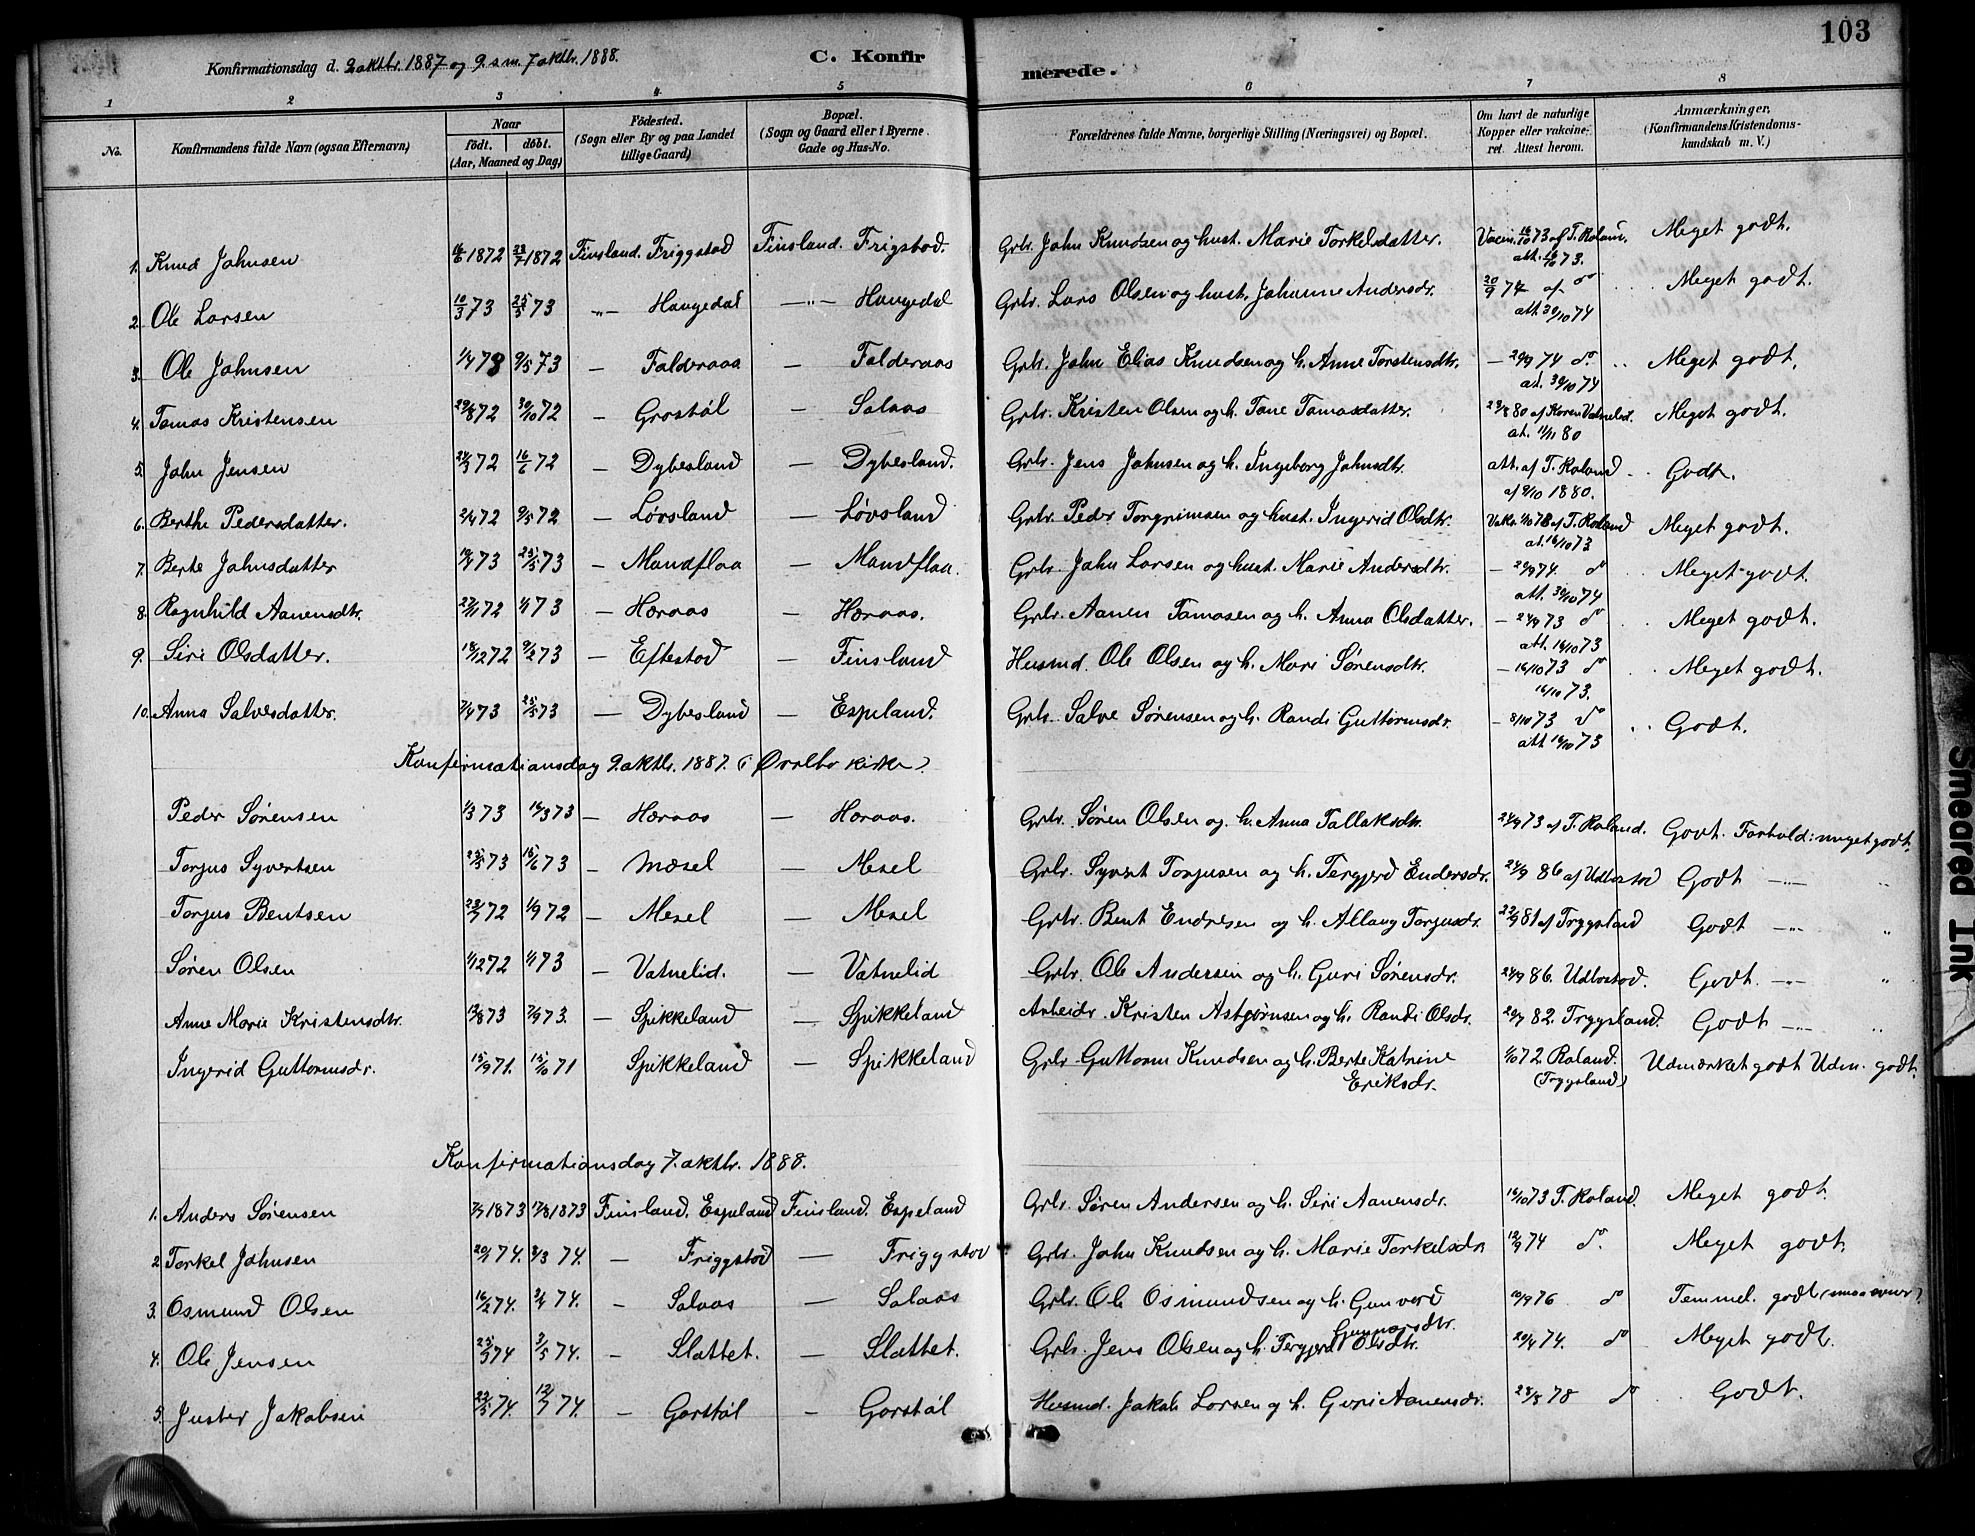 103
Konfirmationsdag d. 2 oktbr. 1887 og 9. s m. 7 oktbr. 1888.
C. Konfirmerede.
1 2 3 4 5 6 7 8
No. Konfirmandens fulde Navn (ogsaa Efternavn) Naar født. døbt. (Aar, Maaned og Dag) Fødested. (Sogn eller By og paa Landet tillige Gaard) Bopæl. (Sogn og Gaard eller i Byerne Gade og Hus-No. Forældrenes fulde Navne, borgerlige Stilling (Næringsvei) og Bopæl. Om havt de naturlige Kopper eller vakcineret. Attest herom. Anmærkninger, (Konfirmandens Kristendomskundskab m. V.)
1. Knud Johnsen 16/6 1872 28/7 1872 Finsland. Friggstod Finsland. Frigstod. Grbr. John Knudsen og hust. Marie Torkelsdatter. Vacin. 16/10 73 af T. Roland. att. 16/10 73. Meget godt.
2. Ole Larsen 10/3 73 25/5 73 -"- Haugedal -"- Haugedal Grbr. Lars Olsen og hust. Johanne Andersdr. 20/9 74 af do att. 30/10 74 Meget godt.
3. Ole Johnsen 1/4 73 9/5 73 — Falderaas — Falderaas Grbr. John Elias Knudsen og h. Anne Torstensdtr. — 20/9 74 do. at. 30/10 74 Meget godt.
4. Tomas Kristensen 29/8 72 30/10 72 — Grostøl — Salaas Grbr. Kristen Olsen og h. Tone Tomasdatter. 23/8 80 af Koren Vatnelid. at. 11/11 80 Meget godt.
5. John Jensen 24/3 72 16/6 72 — Dybesland — Dybesland. Grbr. Jens Johnsen og h. Ingeborg Johnsdtr. att. af T. Roland af 9/10 1880. Godt.
6. Berthe Pedersdatter. 2/4 72 9/5 72 — Løvsland — Løvsland Grbr. Peder Torgrimsen og hust. Ingerid Olsdtr. Vakc. 1/10 73 af T. Roland at. 16/10 73 Meget godt.
7. Berte Johnsdatter 10/4 73 25/5 73 — Mandflaa — Mandflaa. Grbr. John Larsen og hust. Marie Andersdtr. — 20/9 74. do att. 30/10 74 Meget godt.
8. Ragnhild Aanensdtr. 27/11 72 1/1 73 — Høraas — Høraas. Grbr. Aanen Tomasen og h. Anna Olsdatter. — 24/9 73 do att. 16/10 73 Meget godt.
9. Siri Olsdatter. 18/12 72 9/2 73 — Eftestod — Finsland Husmd. Ole Olsen og h. Mari Sørensdtr. — 16/10 73 do 16/10 73. Meget godt.
10. Anna Salvesdatter. 7/4 73 25/5 73 — Dybesland — Espeland. Grbr. Salve Sørensen og h. Randi Guttormsdr. — 8/10 73 do att 16/10 73 Godt.
Konfirmationsdag 9. oktbr. 1887. (i Øvrebø kirke).
Peder Sørensen 1/3 73 16/3 73 — Høraas — Høraas. Grbr. Søren Olsen og h. Anna Tallaksdtr. 24/9 73 af T. Roland. Godt. Forhold: meget godt.
Torjus Syvertsen 25/5 73 15/6 73 — Mæsel — Mesel Grbr. Syvert Torjusen og h. Tergjerd Endersdr. 24/9 86 af Udbostod Godt -"- "
Torjus Bentsen 23/7 72 1/9 72 — Mesel — Mesel Grbr. Bent Endresen og h. Allaug Torjusdr. 22/9 81 af Trygsland Godt -"- "
Søren Olsen 1/12 72 1/1 73 — Vatnelid. — Vatnelid Grbr. Ole Andersen og h. Guri Sørensdr. 24/9 86. Udbostod. Godt. -"- "
Anne Marie Kristensdtr. 13/8 73 7/9 73. — Spikkeland — Spikkeland Arbeidr. Kristen Asbjørnsen og h. Randi Olsdr. 20/7 82. Trygsland. Godt -"- "
Ingerid Guttormsdr. 15/9 71. 15/10 71 Spikkeland — Spikkeland Grbr. Guttorm Knudsen og h. Berte Katrine Eriksdr. 1/10 72 Roland. (Trygsland) Udmærket godt Udm. godt.
Konfirmationsdag 7. oktbr. 1888.
1. Anders Sørensen 7/7 1873 17/8 1873 Finsland. Espeland Finsland. Espeland Grbr. Søren Andersen og h. Siri Aanensdr. 16/10 73 T. Roland. Meget godt.
2 Torkel Johnsen 20/1 74. 8/3 74. — Friggstod — Friggstod Grbr. John Knudsen og h. Marie Torkelsdr 12/9 74 do. Meget godt.
3. Osmund Olsen 16/2 74. 3/4 74. — Salaas — Salaas Grbr. Ole Osmundsen og h. Gunvord Gunnarsdtr. 10/9 76 do Temmel. godt
4. Ole Jensen 25/3 74 3/5 74. — Slattet. — Slattet. Grbr. Jens Olsen og h. Tergjerd Olsdtr. 20/4 74. do Meget godt.
5. Juster Jakobsen 22/5 74. 12/7 74. — Gorstøl — Gorstøl Husmd. Jakob Larsen og h. Guri Aanensdr. 28/8 78 do Godt.
Smeared Ink